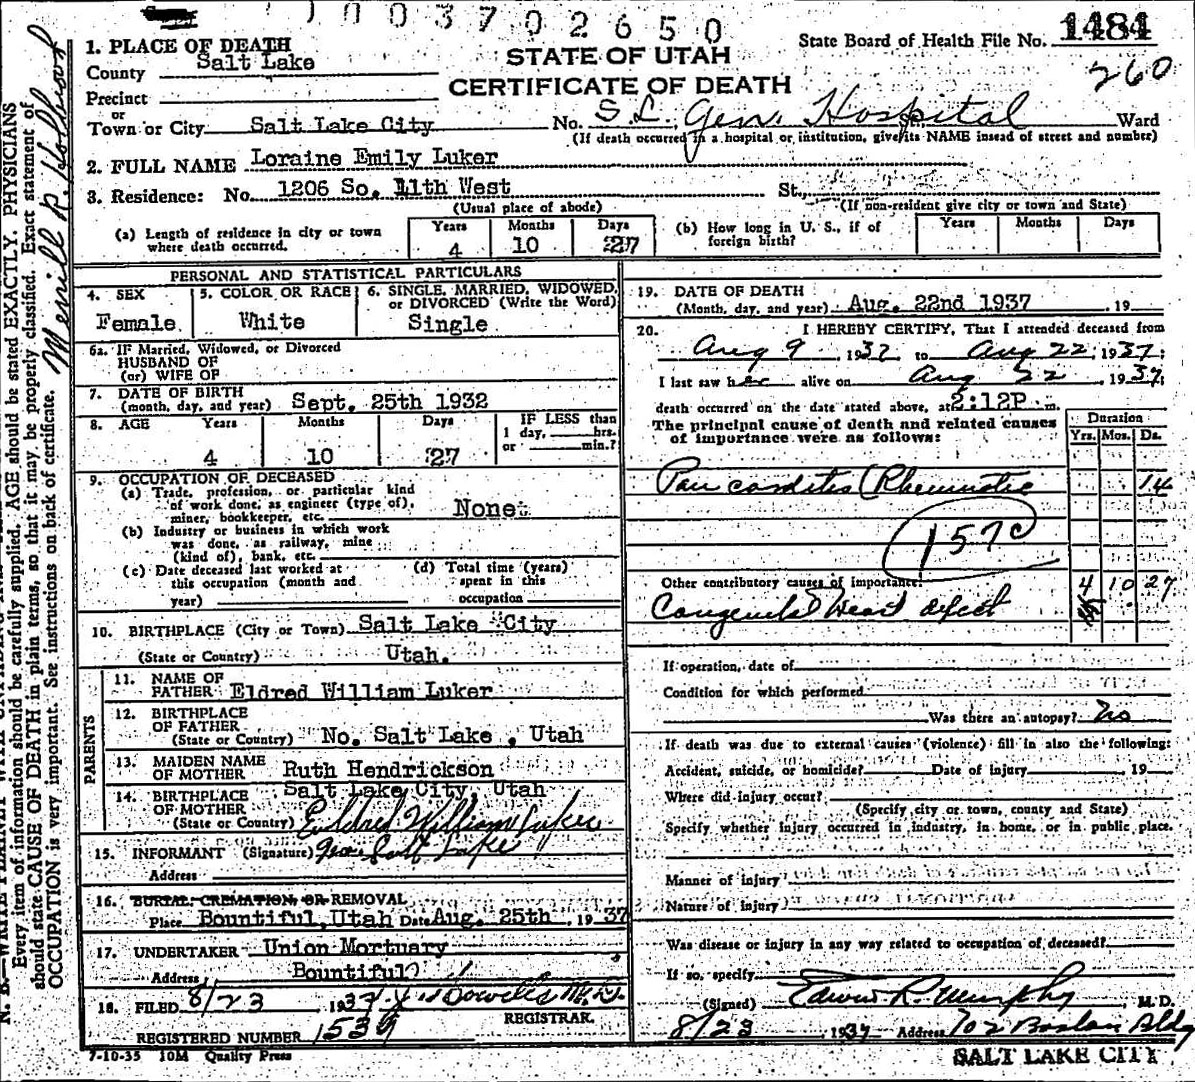 0 0 3 7 0 2 6 5 0
State Board of Health File No. 1484
260
STATE OF UTAH
CERTIFICATE OF DEATH
1. PLACE OF DEATH
County Salt Lake
Precinct
or
Town or City Salt Lake City No. S.L. Gen. Hospital Ward
(If death occurred in a hospital or institution, give its NAME instead of street and number)
2. FULL NAME Loraine Emily Luker
3. Residence: No. 1206 So. 11th West St.
(Usual place of abode) (If non-resident give city or town and State)
(a) Length of residence in city or town where death occurred. Years 4 Months 10 Days 27
(b) How long in U. S., if of foreign birth? Years Months Days
PERSONAL AND STATISTICAL PARTICULARS
4. SEX Female
5. COLOR OR RACE White
6. SINGLE, MARRIED, WIDOWED, or DIVORCED (Write the Word) Single
6a. IF Married, Widowed, or Divorced
HUSBAND OF
(or) WIFE OF
7. DATE OF BIRTH
(month, day, and year) Sept. 25th 1932
8. AGE Years 4 Months 10 Days 27
IF LESS than
1 day, hrs.
or min.?
9. OCCUPATION OF DECEASED
(a) Trade, profession, or particular kind
of work done, as engineer (type of),
miner, bookkeeper, etc. None.
(b) Industry or business in which work
was done, as railway, mine
(kind of), bank, etc.
(c) Date deceased last worked at
this occupation (month and
year)
(d) Total time (years)
spent in this
occupation
10. BIRTHPLACE (City or Town) Salt Lake City
(State or Country) Utah.
PARENTS
11. NAME OF
FATHER Eldred William Luker
12. BIRTHPLACE
OF FATHER
(State or Country) No. Salt Lake, Utah
13. MAIDEN NAME
OF MOTHER Ruth Hendrickson
14. BIRTHPLACE
OF MOTHER
(State or Country) Salt Lake City, Utah
15. INFORMANT (Signature) Eldred William Luker
Salt Lake
Address
16. BURIAL, CREMATION, OR REMOVAL
Place Bountiful, Utah Date Aug. 25th, 1937
17. UNDERTAKER Union Mortuary
Address Bountiful
18. FILED 8/23 1937
REGISTRAR.
REGISTERED NUMBER 1539
7-10-35 10M Quality Press
19. DATE OF DEATH
(Month, day, and year) Aug. 22nd 1937, 19
20. I HEREBY CERTIFY, That I attended deceased from
Aug 9 1937 to Aug 22, 1937;
I last saw her alive on Aug 22, 1937;
death occurred on the date stated above, at 2:12P m.
The principal cause of death and related causes
of importance were as follows:
Duration
Yrs. Mos. Ds.
Pancarditis (Rheumatic 14
157c
Other contributory causes of importance: 4 10 27
Congenital Heart defect
If operation, date of
Condition for which performed
Was there an autopsy? No
If death was due to external causes (violence) fill in also the following:
Accident, suicide, or homicide? Date of injury 19
Where did injury occur?
(Specify city or town, county and State)
Specify whether injury occurred in industry, in home, or in public place.
Manner of injury
Nature of injury
Was disease or injury in any way related to occupation of deceased?
If so, specify
(Signed) Edwin R. Murphy, M. D.
8/23 1937 Address 702 Boston Bldg
SALT LAKE CITY
Every item of information should be carefully supplied. AGE should be stated EXACTLY. PHYSICIANS
should state CAUSE OF DEATH in plain terms, so that it may be properly classified. Exact statement of
OCCUPATION is very important. See instructions on back of certificate.
Merrill R. Holbrook